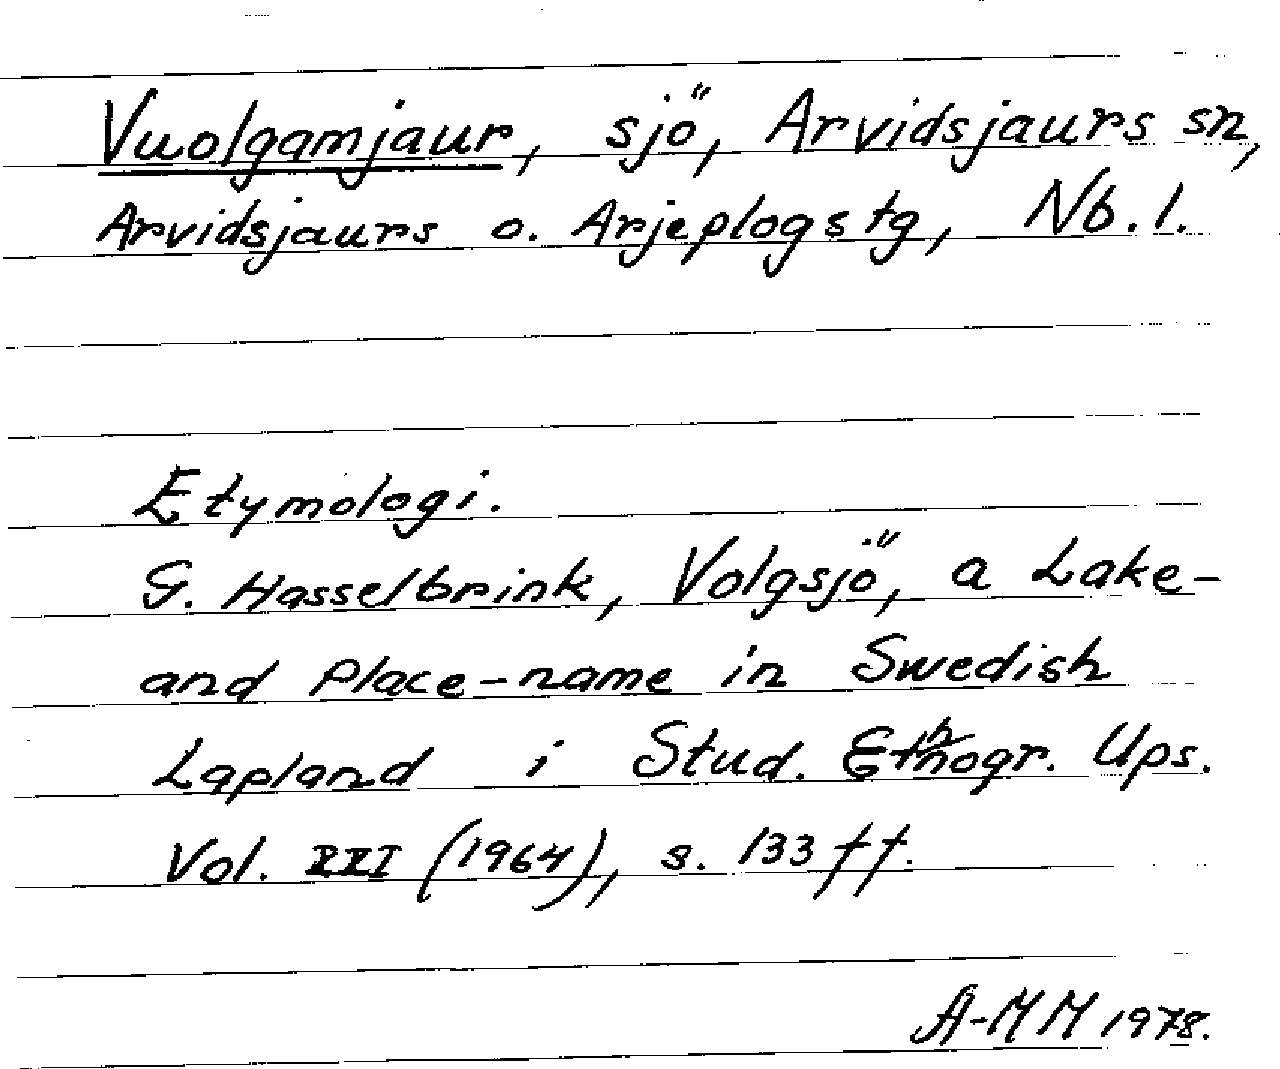 Vuolgamjaur, sjö, Arvidsjaurs sn,
Arvidsjaurs o. Arjeplogs tg, Nb. l.
Etymologi.
G. Hasselbrink, Volgsjö, a Lake-
and Place-name in Swedish
Lapland i Stud. Ethnogr. Ups.
Vol. XXI (1964), s. 133 ff.
A-MM 1978.